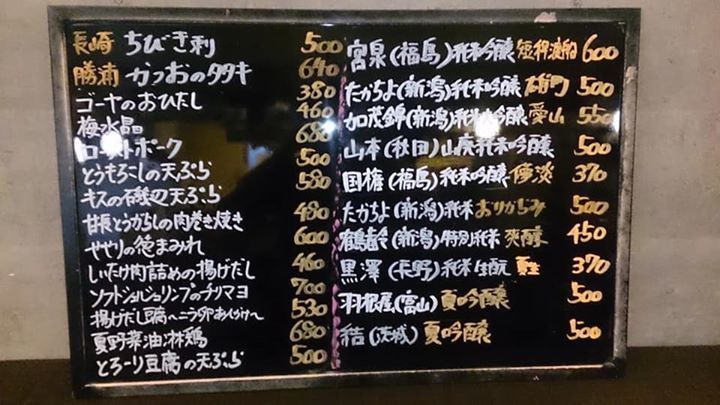 長崎 ちびき刺 500
勝浦 かつおのタタキ 640
ゴーヤのおひたし 380
梅水晶 460
ローストポーク 680
とうもろこしの天ぷら 500
キスの磯辺天ぷら 580
甘長とうがらしの肉巻き焼き 480
せせりの塩まみれ 600
しいたけ肉詰めの揚げだし 460
ソフトシェルシュリンプのチリマヨ 700
揚げだし豆腐 530
夏野菜油淋鶏 680
とろーり豆腐の天ぷら 500
宮泉(福島)純米吟醸 短稈渡船 600
たかちよ(新潟)純米吟醸 雄町 500
加茂錦(新潟)純米大吟醸 愛山 550
山本(秋田)山廃純米吟醸 500
国権(福島)純米吟醸 370
たかちよ(新潟)純米 おりがらみ 500
鶴齢(新潟)特別純米 爽醇 450
黒澤(長野)純米生酛 夏生 370
羽根屋(富山)夏吟醸 500
結(茨城)夏吟醸 500